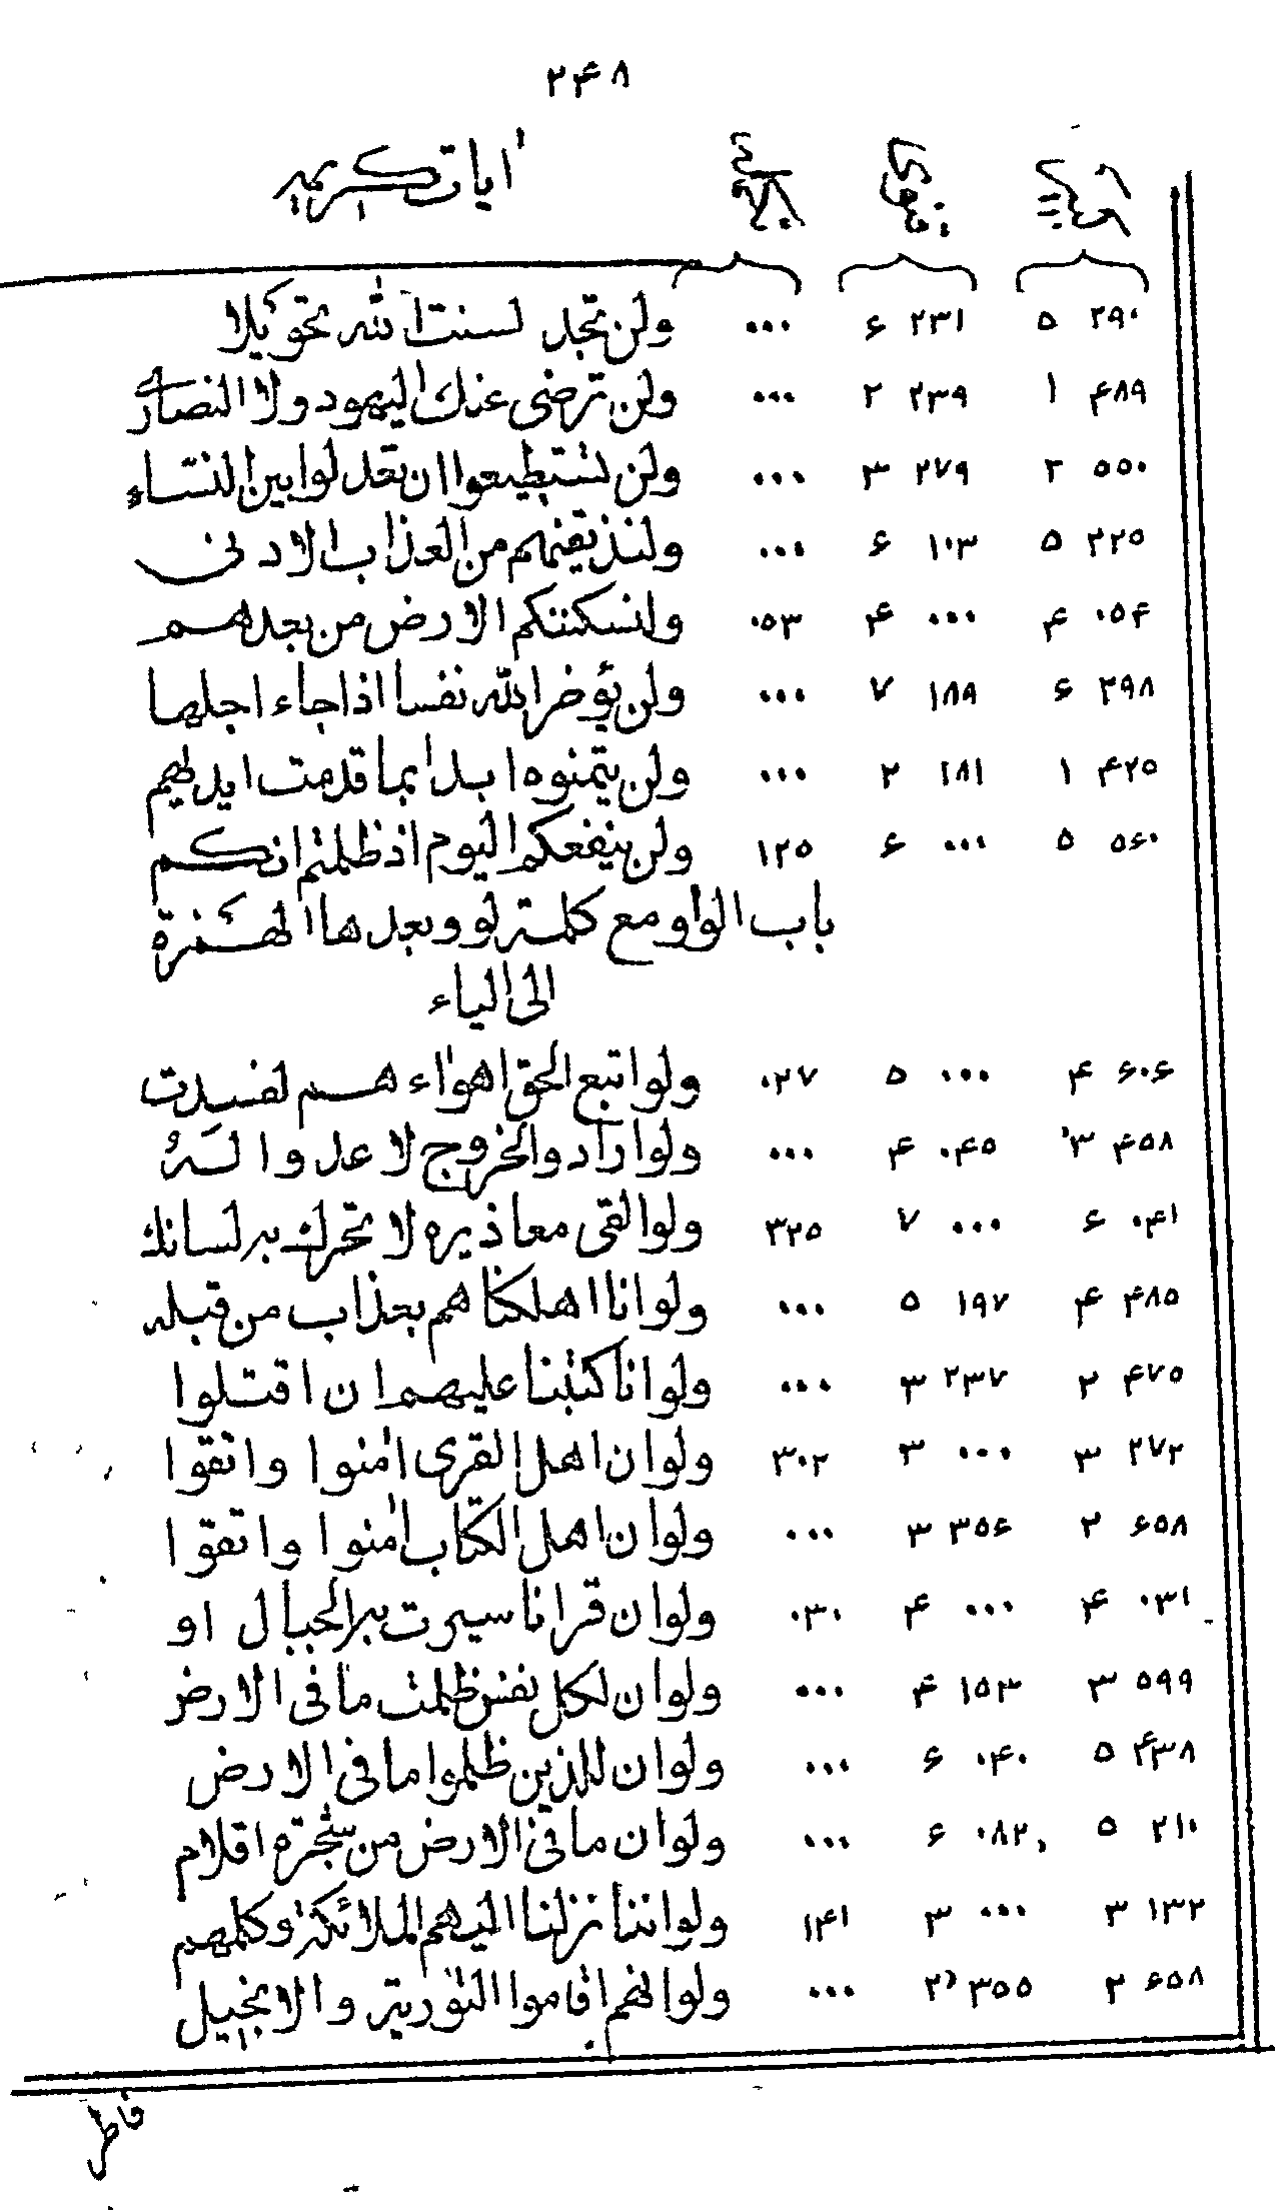 ۲۴۸
ایات کریمه
۲۹۰ ۵ ۲۳۱ ۶ ۰۰۰ ولن تجد لسنت الله تحویلا
۴۸۹ ۱ ۲۳۹ ۲ ۰۰۰ ولن ترضی عنك الیهود ولا النصاری
۵۵۰ ۲ ۲۷۹ ۳ ۰۰۰ ولن تستطیعوا ان تعدلوا بین النساء
۲۲۵ ۵ ۱۰۳ ۶ ۰۰۰ ولنذیقنهم من العذاب الادنی
۰۵۴ ۴ ۰۰۰ ۴ ۰۵۳ ولنسکننکم الارض من بعدهم
۲۹۸ ۶ ۱۸۹ ۷ ۰۰۰ ولن یؤخر الله نفسا اذا جاء اجلها
۴۲۵ ۱ ۱۸۱ ۲ ۰۰۰ ولن یتمنوه ابدا بما قدمت ایدیهم
۵۶۰ ۵ ۰۰۰ ۶ ۱۲۵ ولن ینفعکم الیوم اذ ظلمتم انکم
باب الواو مع کلمة لو وبعدها الهمزة
الی الیاء
۶۰۶ ۴ ۰۰۰ ۵ ۰۲۷ ولو اتبع الحق اهواء هم لفسدت
۴۵۸ ۳ ۰۴۵ ۴ ۰۰۰ ولو ارادوا الخروج لاعدوا له
۰۴۱ ۶ ۰۰۰ ۷ ۳۲۵ ولو القی معاذیره لا تحرك به لسانك
۴۸۵ ۴ ۱۹۷ ۵ ۰۰۰ ولو انا اهلکناهم بعذاب من قبله
۴۷۵ ۲ ۲۳۷ ۳ ۰۰۰ ولو انا کتبنا علیهم ان اقتلوا
۲۷۲ ۳ ۰۰۰ ۳ ۳۰۲ ولو ان اهل القری امنوا واتقوا
۶۵۸ ۲ ۳۵۶ ۳ ۰۰۰ ولو ان اهل الکتاب امنوا واتقوا
۰۳۱ ۴ ۰۰۰ ۴ ۰۳۰ ولو ان قرانا سیرت به الجبال او
۵۹۹ ۳ ۱۵۳ ۴ ۰۰۰ ولو ان لکل نفس ظلمت ما فی الارض
۴۳۸ ۵ ۰۴۰ ۶ ۰۰۰ ولو ان للذین ظلموا ما فی الارض
۲۱۰ ۵ ۰۸۲ ۶ ۰۰۰ ولو ان ما فی الارض من شجرة اقلام
۱۳۲ ۳ ۰۰۰ ۳ ۱۴۱ ولو اننا نزلنا الیهم الملائکة وکلمهم
۶۵۸ ۲ ۳۵۵ ۲ ۰۰۰ ولو انهم اقاموا التوریة والانجیل
فاطر